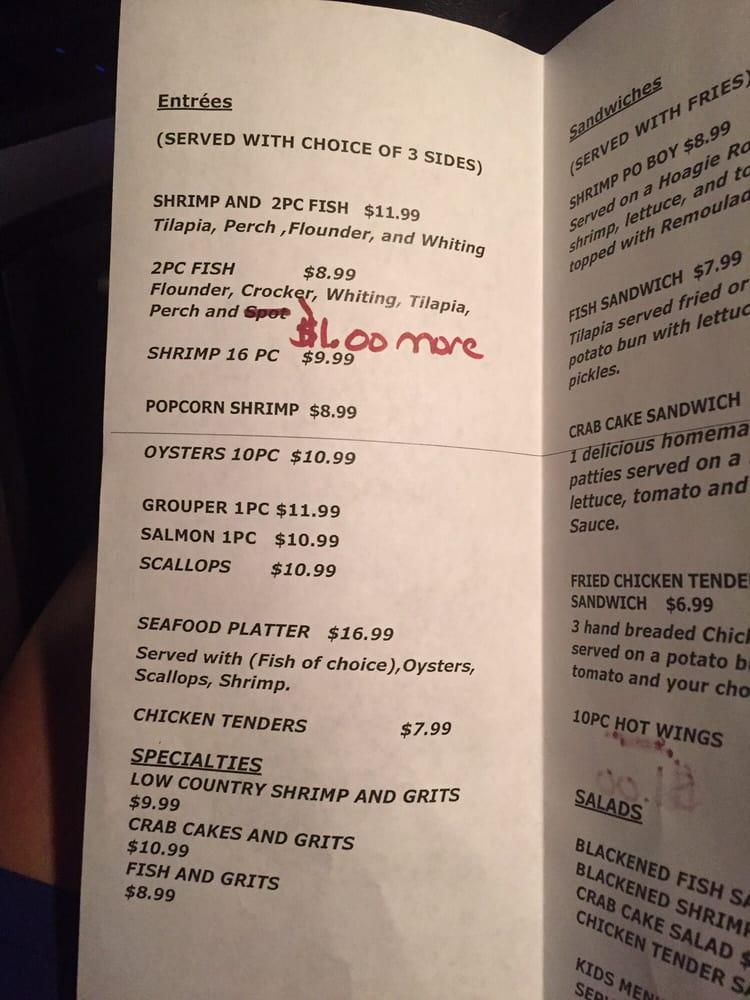 Entrées
(SERVED WITH CHOICE OF 3 SIDES)
SHRIMP AND 2PC FISH $11.99
Tilapia, Perch ,Flounder, and Whiting
2PC FISH $8.99
Flounder, Crocker, Whiting, Tilapia,
Perch and Spot
$1.00 more
SHRIMP 16 PC $9.99
POPCORN SHRIMP $8.99
OYSTERS 10PC $10.99
GROUPER 1PC $11.99
SALMON 1PC $10.99
SCALLOPS $10.99
SEAFOOD PLATTER $16.99
Served with (Fish of choice),Oysters,
Scallops, Shrimp.
CHICKEN TENDERS $7.99
SPECIALTIES
LOW COUNTRY SHRIMP AND GRITS
$9.99
CRAB CAKES AND GRITS
$10.99
FISH AND GRITS
$8.99
Sandwiches
(SERVED WITH FRIES)
SHRIMP PO BOY $8.99
Served on a Hoagie Ro
shrimp, lettuce, and to
topped with Remoulad
FISH SANDWICH $7.99
Tilapia served fried or
potato bun with lettuc
pickles.
CRAB CAKE SANDWICH
1 delicious homema
patties served on a
lettuce, tomato and
Sauce.
FRIED CHICKEN TENDE
SANDWICH $6.99
3 hand breaded Chic
served on a potato b
tomato and your cho
10PC HOT WINGS
SALADS
BLACKENED FISH SA
BLACKENED SHRIMP
CRAB CAKE SALAD $
CHICKEN TENDER SA
KIDS MEN
SER